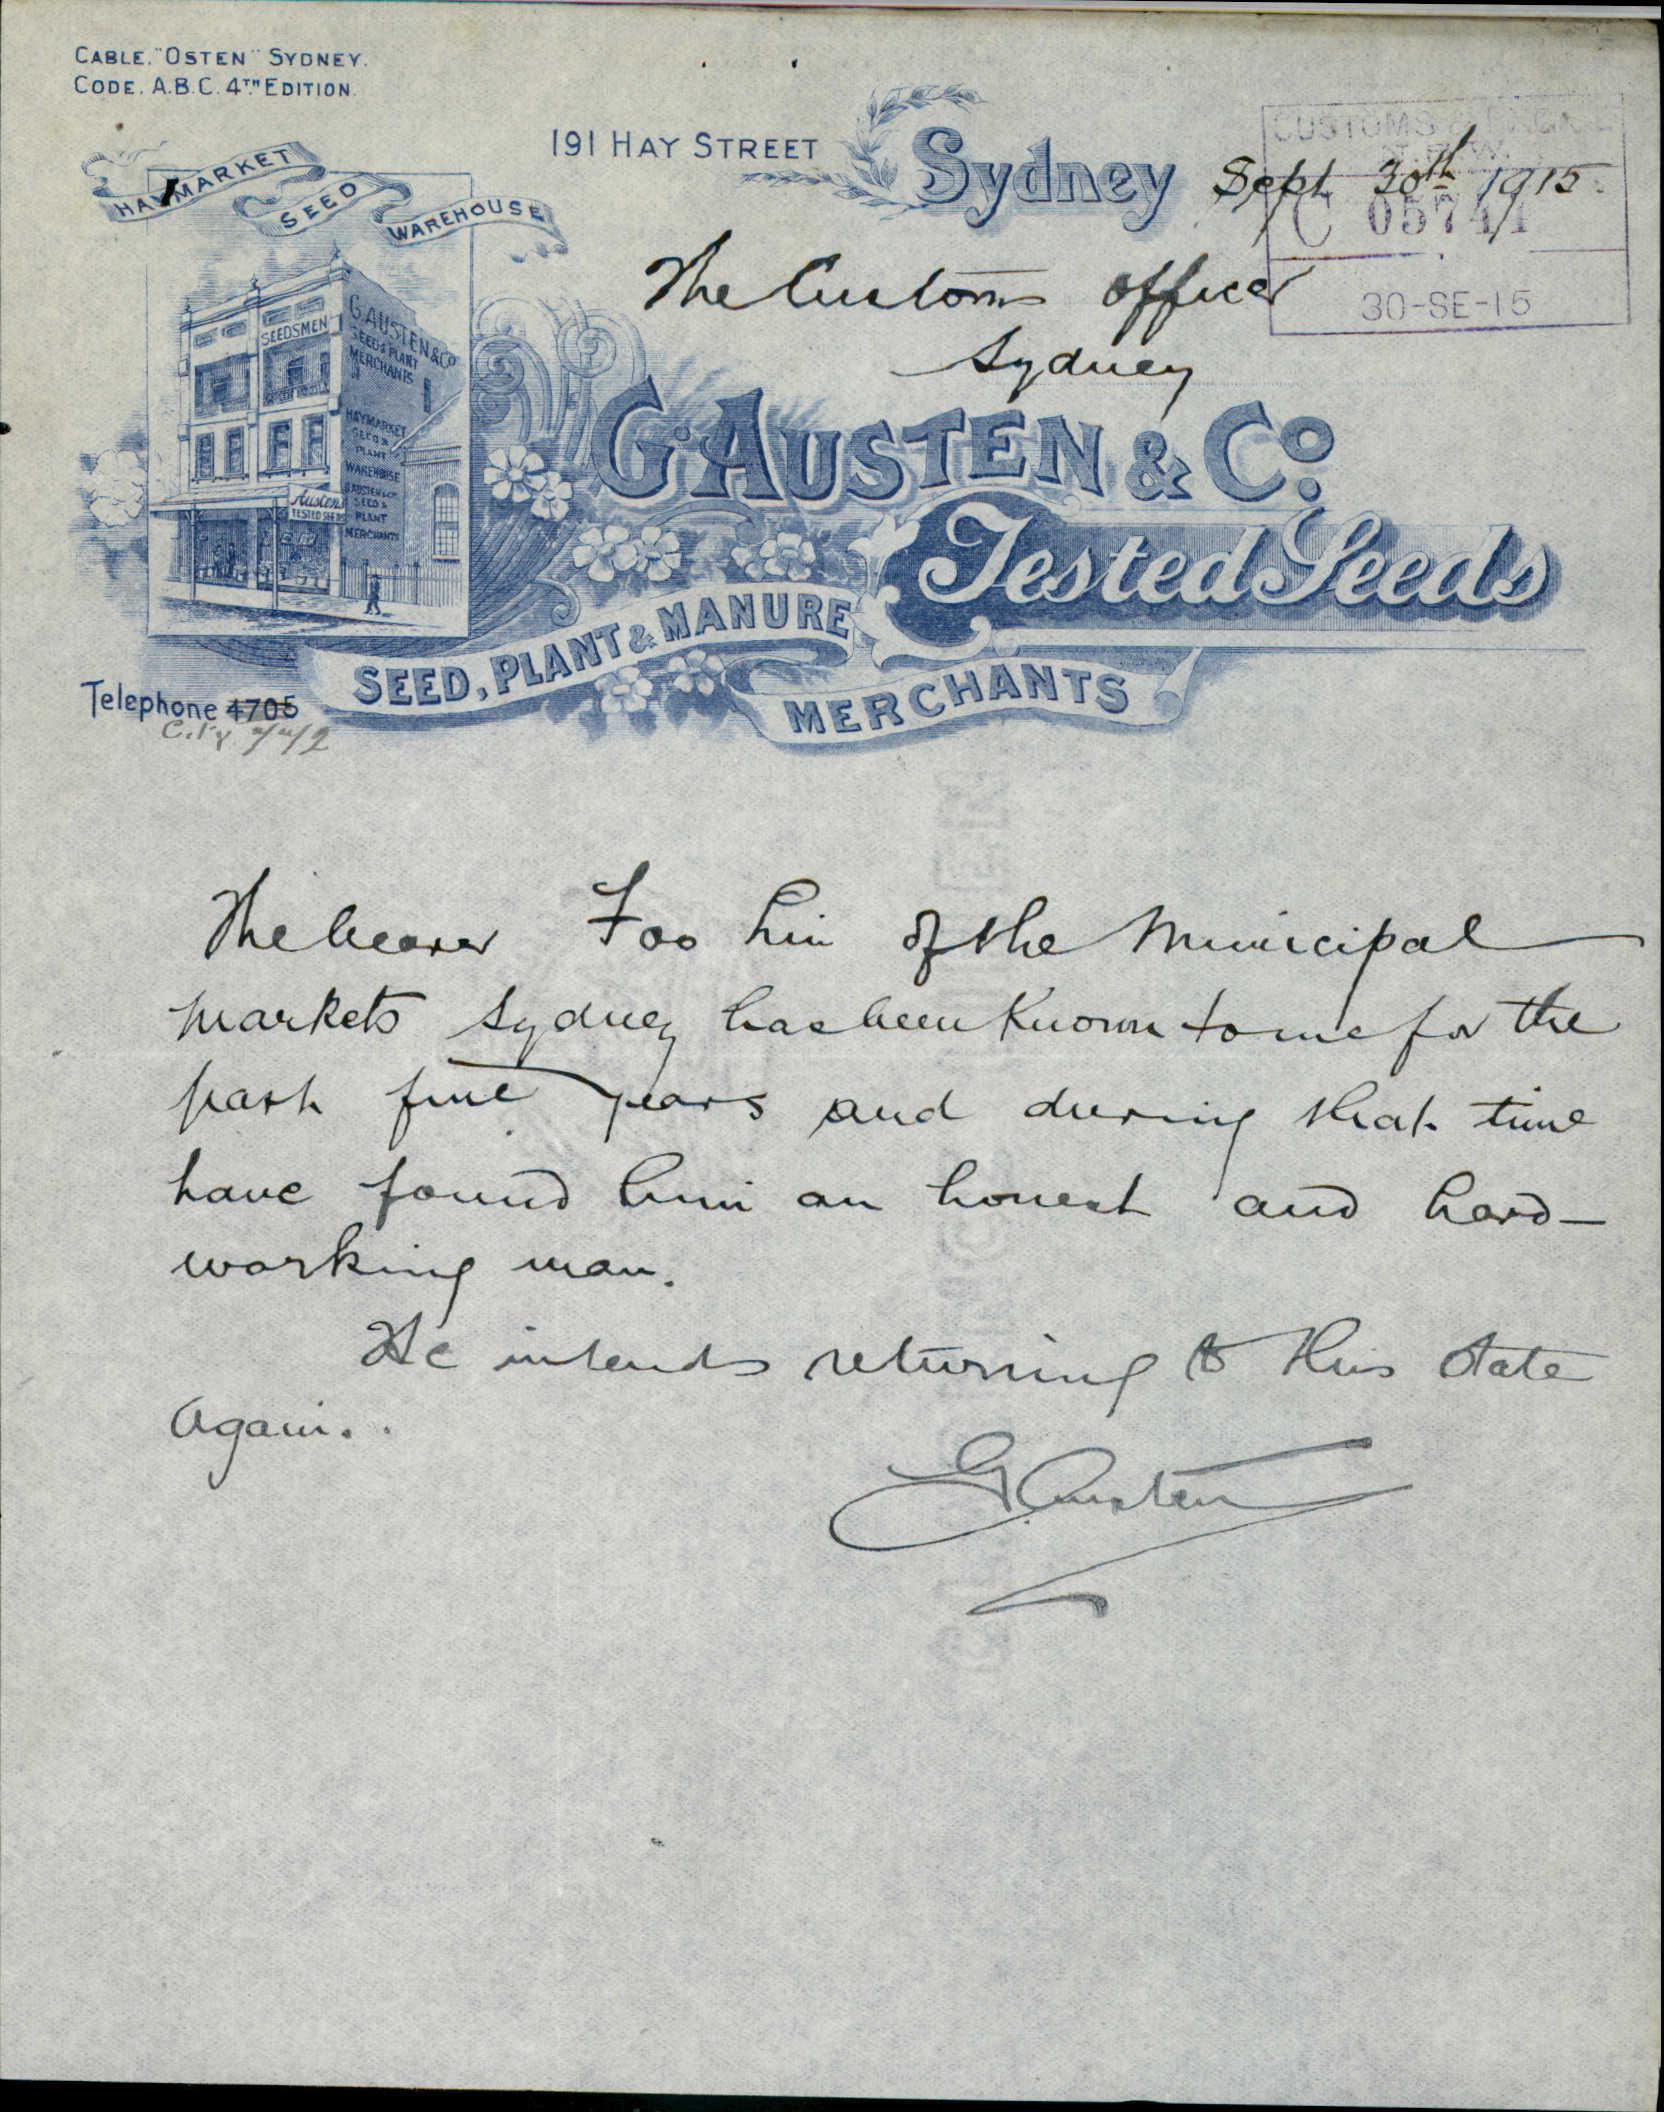 CABLE. "OSTEN" SYDNEY.
CODE. A.B.C. 4TH EDITION.
HAYMARKET
SEED
WAREHOUSE
191 HAY STREET
Sydney
Sept 30th 1915
CUSTOMS &
N.S.W.
C 05741
30-SE-15
The Customs Officer
Sydney
SEEDSMEN
G. AUSTEN & CO
SEED & PLANT
MERCHANTS
HAYMARKET
SEED &
PLANT
WAREHOUSE
G AUSTEN & CO
SEED &
PLANT
MERCHANTS
Austens
TESTED SEEDS
G. AUSTEN & CO.
Tested Seeds
SEED, PLANT & MANURE
MERCHANTS
Telephone 4705
City
The bearer Foo Lin of the Municipal
markets Sydney has been known to me for the
past five years and during that time
have found him an honest and hard-
working man.
He intends returning to this State
again.
G Austen